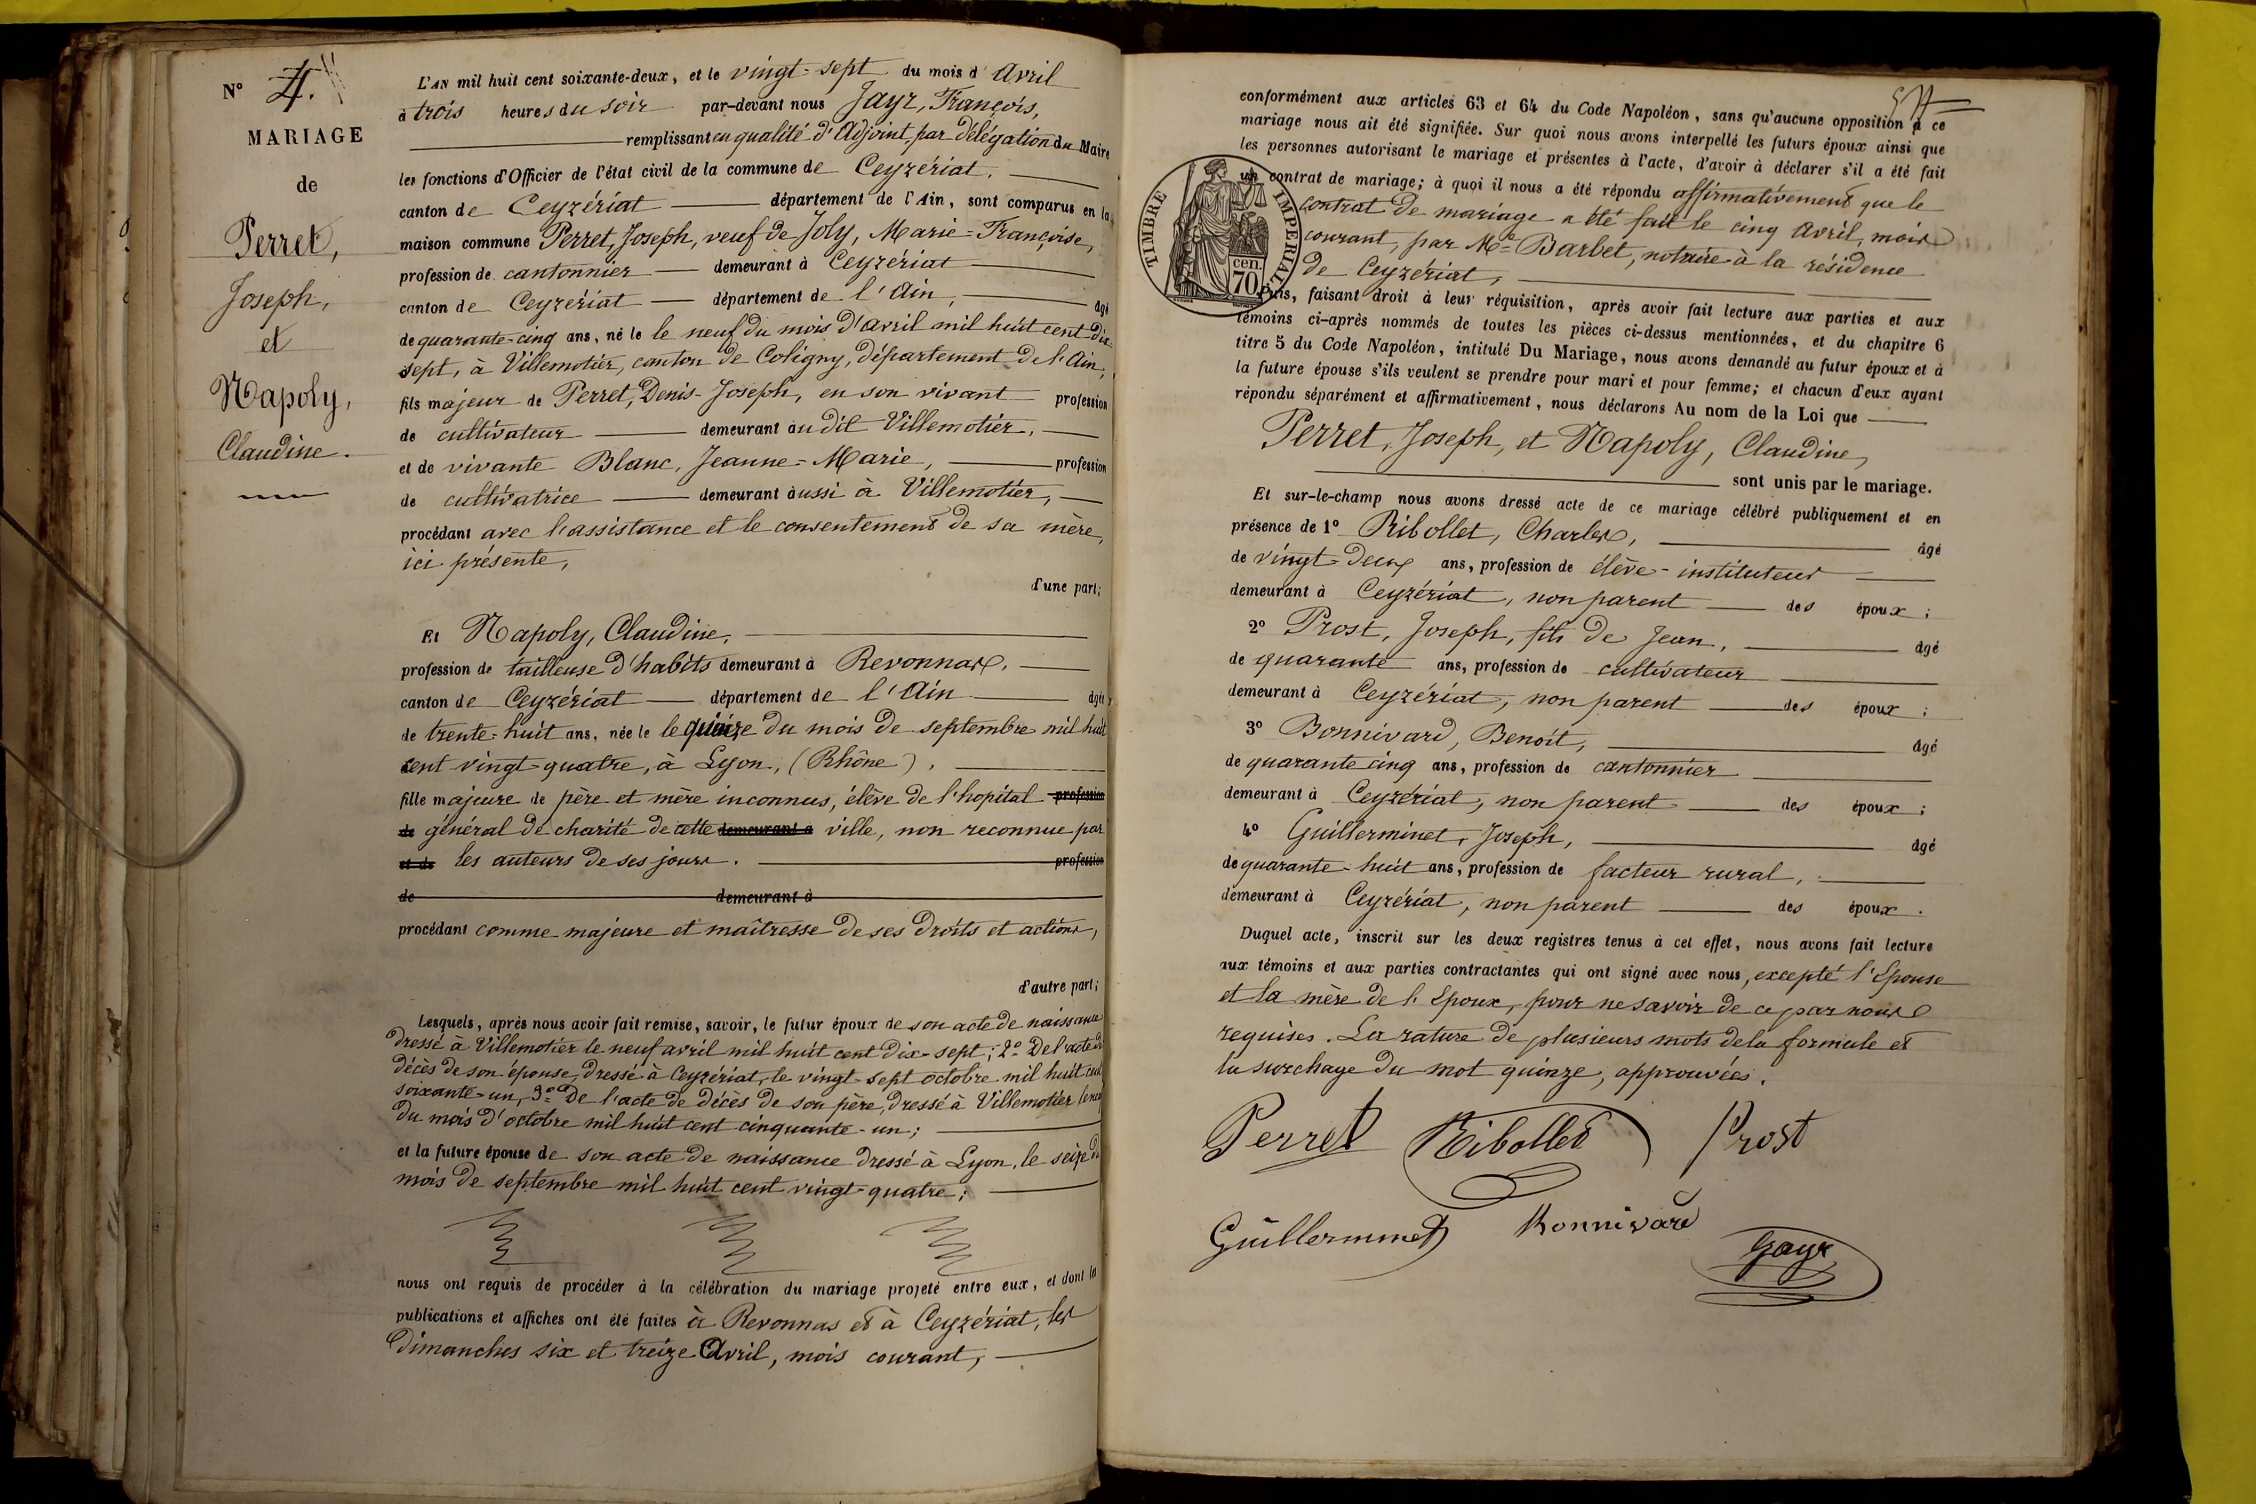 N° 4.
MARIAGE
de
Perret,
Joseph,
et
Napoly,
Claudine.
L'AN mil huit cent soixante-deux, et le vingt-sept du mois d'Avril
à trois heures du soir par-devant nous Jayr, François,
remplissant en qualité d'Adjoint par délégation du Maire
les fonctions d'Officier de l'état civil de la commune de Ceyzériat,
canton de Ceyzériat département de l'Ain, sont comparus en la
maison commune Perret, Joseph, veuf de Joly, Marie-Françoise,
profession de cantonnier demeurant à Ceyzériat
canton de Ceyzériat département de l'Ain, âgé
de quarante-cinq ans, né le le neuf du mois d'avril mil huit cent dix-
sept, à Villemotier, canton de Coligny, département de l'Ain,
fils majeur de Perret, Denis-Joseph, en son vivant profession
de cultivateur demeurant audit Villemotier,
et de vivante Blanc, Jeanne-Marie, profession
de cultivatrice demeurant aussi à Villemotier,
procédant avec l'assistance et le consentement de sa mère,
ici présente,
d'une part;
Et Napoly, Claudine,
profession de tailleuse d'habits demeurant à Revonnas,
canton de Ceyzériat département de l'Ain âgée
de trente-huit ans, née le le quinze du mois de septembre mil huit
cent vingt-quatre, à Lyon, (Rhône),
fille majeure de père et mère inconnus, élève de l'hopital profession
de général de charité de cette demeurant à ville, non reconnue par
et de les auteurs de ses jours. profession
de demeurant à
procédant comme majeure et maîtresse de ses droits et actions,
d'autre part;
Lesquels, après nous avoir fait remise, savoir, le futur époux de son acte de naissance
dressé à Villemotier le neuf avril mil huit cent dix-sept; 2° De l'acte de
décès de son épouse, dressé à Ceyzériat, le vingt-sept octobre mil huit cent
soixante-un, 3° De l'acte de décès de son père, dressé à Villemotier
du mois d'octobre mil huit cent cinquante-un;
et la future épouse de son acte de naissance dressé à Lyon, le seize du
mois de septembre mil huit cent vingt-quatre;
nous ont requis de procéder à la célébration du mariage projeté entre eux, et dont les
publications et affiches ont été faites à Revonnas et à Ceyzériat, les
Dimanches six et treize Avril, mois courant,
conformément aux articles 63 et 64 du Code Napoléon, sans qu'aucune opposition à ce
mariage nous ait été signifiée. Sur quoi nous avons interpellé les futurs époux ainsi que
les personnes autorisant le mariage et présentes à l'acte, d'avoir à déclarer s'il a été fait
un contrat de mariage; à quoi il nous a été répondu affirmativement que le
contrat de mariage a été fait le cinq Avril, mois
courant, par Me Barbet, notaire à la résidence
de Ceyzériat,
TIMBRE IMPÉRIAL
cen.
70
Puis, faisant droit à leur réquisition, après avoir fait lecture aux parties et aux
témoins ci-après nommés de toutes les pièces ci-dessus mentionnées, et du chapitre 6
titre 5 du Code Napoléon, intitulé Du Mariage, nous avons demandé au futur époux et à
la future épouse s'ils veulent se prendre pour mari et pour femme; et chacun d'eux ayant
répondu séparément et affirmativement, nous déclarons Au nom de la Loi que
Perret, Joseph, et Napoly, Claudine,
sont unis par le mariage.
Et sur-le-champ nous avons dressé acte de ce mariage célébré publiquement et en
présence de 1° Ribollet, Charles, âgé
de vingt-deux ans, profession de élève-instituteur
demeurant à Ceyzériat, non parent des époux;
2° Prost, Joseph, fils de Jean, âgé
de quarante ans, profession de cultivateur
demeurant à Ceyzériat, non parent des époux;
3° Bonnivard, Benoit, âgé
de quarante cinq ans, profession de cantonnier
demeurant à Ceyzériat, non parent des époux;
4° Guillerminet, Joseph, âgé
de quarante-huit ans, profession de facteur rural,
demeurant à Ceyzériat, non parent des époux.
Duquel acte, inscrit sur les deux registres tenus à cet effet, nous avons fait lecture
aux témoins et aux parties contractantes qui ont signé avec nous, excepté l'Epouse
et la mère de l'Epoux, pour ne savoir de ce par nous
requises. La rature de plusieurs mots de la formule et
la surchage du mot quinze, approuvées.
Perret Ribollet Prost
Guillerminet Bonnivard
Jayr